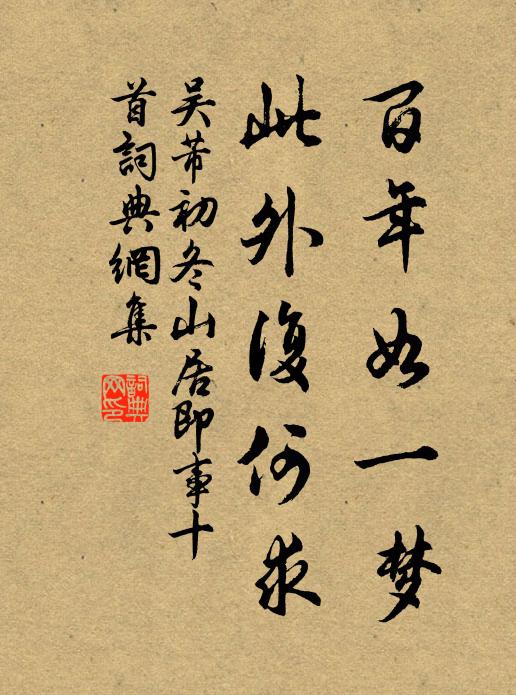 百年如一梦
此外復何求
吴芾初冬山居即事十
首詞典網集
詞典網印